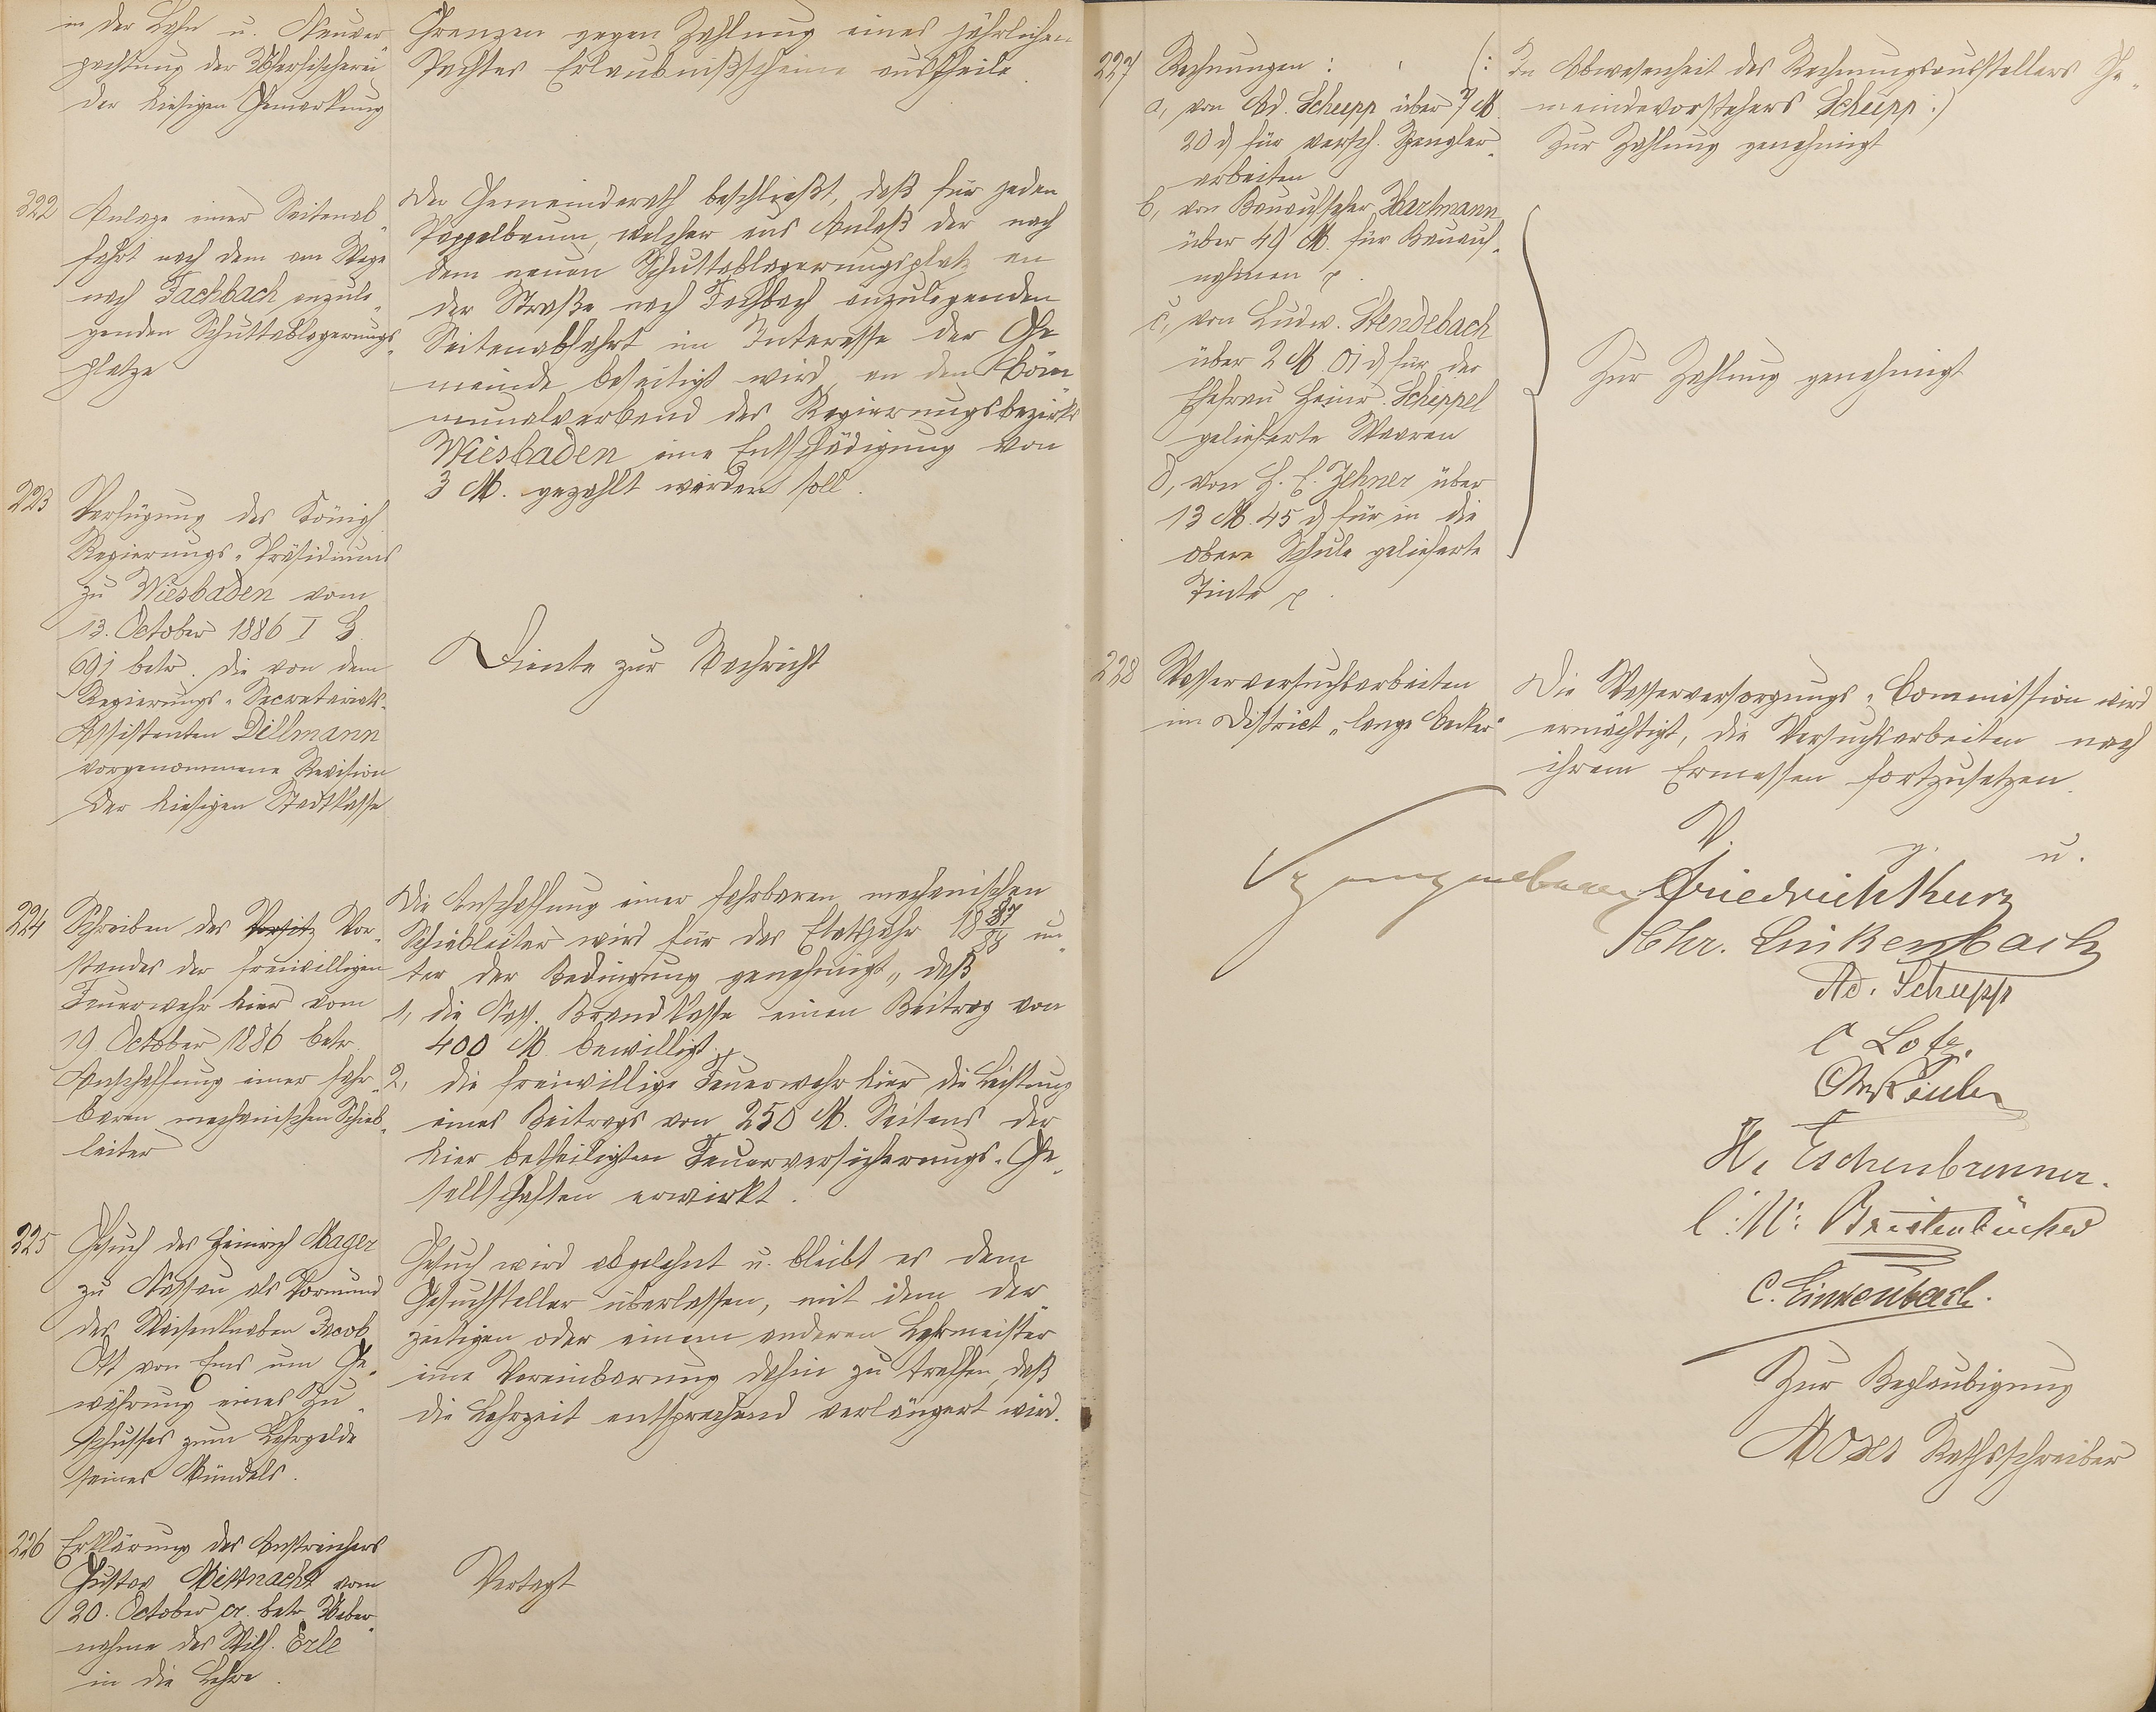 in der Lahn u. Neuver
pachtung der Uferfischerei
der hiesigen Gemarkung
Grenzen gegen Zahlung eines jährlichen
Pachtes Erlaubnißscheine ausstheile.
322
Anlage einer Seitenab„
fahrt nach dem am Wege
nach Fachbach anzule„
genden Schuttablagerungs„
platze
Der Gemeinderath beschließt, daß für jeden
Pappelbaum, welcher aus Anlaß der nach
dem neuen Schuttablagerungsplatz an
der Straße nach Fachbach anzulegenden
Seitenabfahrt im Interesse der Ge
meinde beseitigt wird, an den Com
munalverband des Regierungsbezirks
Wiesbaden eine Entschädigung von
3 M. gezahlt werden soll.
223
Verfügung des Königl.
Regierungs„Präsidiums
zu Wiesbaden vom
13. October 1886 I G.
691 betr. die von dem
Regierungs„Secretariats„
Assistenten Dillmann
vorgenommene Revision
der hiesigen Stadtkasse
Diente zur Nachricht
224
Schreiben des Vorsitz Vor„
standes der freiwilligen
Feuerwehr hier vom
19 October 1886 betr.
Anschaffung einer fahr„
baren mechanischen Schieb„
leiter
Die Anschaffung einer fahrbaren mechanischen
Schiebleiter wird für das Etatsjahr 18 87/88 un„
ter der Bedingung genehmigt, daß
1, die Nass. Brandkasse einen Beitrag von
400 M. bewilligt.
2, die freiwillige Feuerwehr hier die Leistung
eines Beitrags von 250 M. Seitens der
hier betheiligten Feuerversicherungs„Ge„
sellschaften erwirkt.
225
Gesuch des Heinrich Mager
zu Nassau als Vormund
des Waisenknaben Jacob
Ott von Ems um Ge„
währung eines Zu„
schusses zum Lehrgelde
seines Mündels.
Gesuch wird abgelehnt u. bleibt es dem
Gesuchsteller überlassen, mit dem der„
zeitigen oder einem anderen Lehrmeister
eine Vereinbarung dahin zu treffen, daß
die Lehrzeit entsprechend verlängert wird.
226
Erklärung des Anstreichers
Gustav Mittnacht vom
20. October cr. betr. Ueber„
nahme des Wilh. Erle
in die Lehre.
Vertagt
227
Rechnungen:
a, von Ad. Schupp über 7 M.
20 ₰ für versch. Spengler„
arbeiten
(: In Abwesenheit des Rechnungsausstellers Ge„
meindevorstehers Schupp :)
Zur Zahlung genehmigt
b, von Bauaufseher Hartmann
über 49 M. für Bauauf„
nahmen p.
c, von Ludw. Stendebach
über 2 M. 01 ₰ für der
Ehefrau Heinr. Scheppel
gelieferte Waaren
d, von H. E. Zehner über
13 M. 45 ₰ für in die
obere Schule gelieferte
Tinte p.
Zur Zahlung genehmigt
228
Wasserversuchsarbeiten
im District „lange Aecker“
Die Wasserversorgungs„Commission wird
ermächtigt, die Versuchsarbeiten nach
ihrem Ermessen fortzusetzen.
V. g. u.
Friedrich Kurz
Chr. Linkenbach
Ad. Schupp
C Lotz.
H. Eschenbrenner.
C. W. Breitenbücher
C. Linkenbach.
Zur Beglaubigung
Moses Rathsschreiber